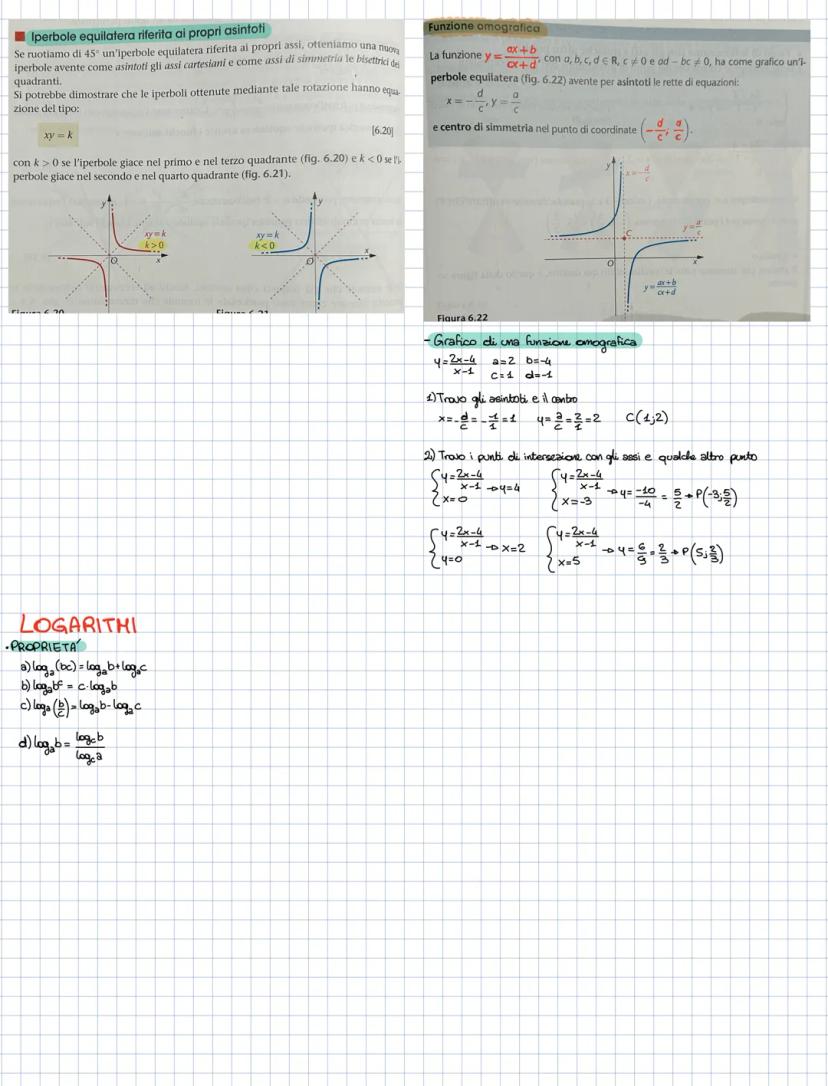 Iperbole equilatera riferita ai propri asintoti
Se ruotiamo di 45° un'iperbole equilatera riferita ai propri assi, otteniamo una nuova
iperbole avente come asintoti gli assi cartesiani e come assi di simmetria le bisettrici dei
quadranti.
Si potrebbe dimostrare che le iperboli ottenute mediante tale rotazione hanno equa-
zione del tipo:
xy = k [6.20]
con k > 0 se l'iperbole giace nel primo e nel terzo quadrante (fig. 6.20) e k < 0 se l'i-
perbole giace nel secondo e nel quarto quadrante (fig. 6.21).
y
xy = k
k > 0
O
x
y
xy = k
k < 0
O
x
Funzione omografica
La funzione y = (ax + b)/(cx + d), con a, b, c, d ∈ R, c ≠ 0 e ad − bc ≠ 0, ha come grafico un'i-
perbole equilatera (fig. 6.22) avente per asintoti le rette di equazioni:
x = − d/c, y = a/c
e centro di simmetria nel punto di coordinate (− d/c; a/c).
y
x = − d/c
y = a/c
C
O
x
y = (ax + b)/(cx + d)
Figura 6.22
- Grafico di una funzione omografica
y = (2x-4)/(x-1) a=2 b=-4
c=1 d=-1
1) Trovo gli asintoti e il centro
x = -d/c = - -1/1 = 1 y = a/c = 2/1 = 2 C(1;2)
2) Trovo i punti di intersezione con gli assi e qualche altro punto
{ y = (2x-4)/(x-1) → y=4
x=0
{ y = (2x-4)/(x-1) → y = -10/-4 = 5/2 → P(-3; 5/2)
x=-3
{ y = (2x-4)/(x-1) → x=2
y=0
{ y = (2x-4)/(x-1) → y = 6/9 = 2/3 → P(5; 2/3)
x=5
LOGARITMI
• PROPRIETA'
a) logₐ(bc) = logₐb + logₐc
b) logₐbᶜ = c·logₐb
c) logₐ(b/c) = logₐb - logₐc
d) logₐb = log_c b / log_c a